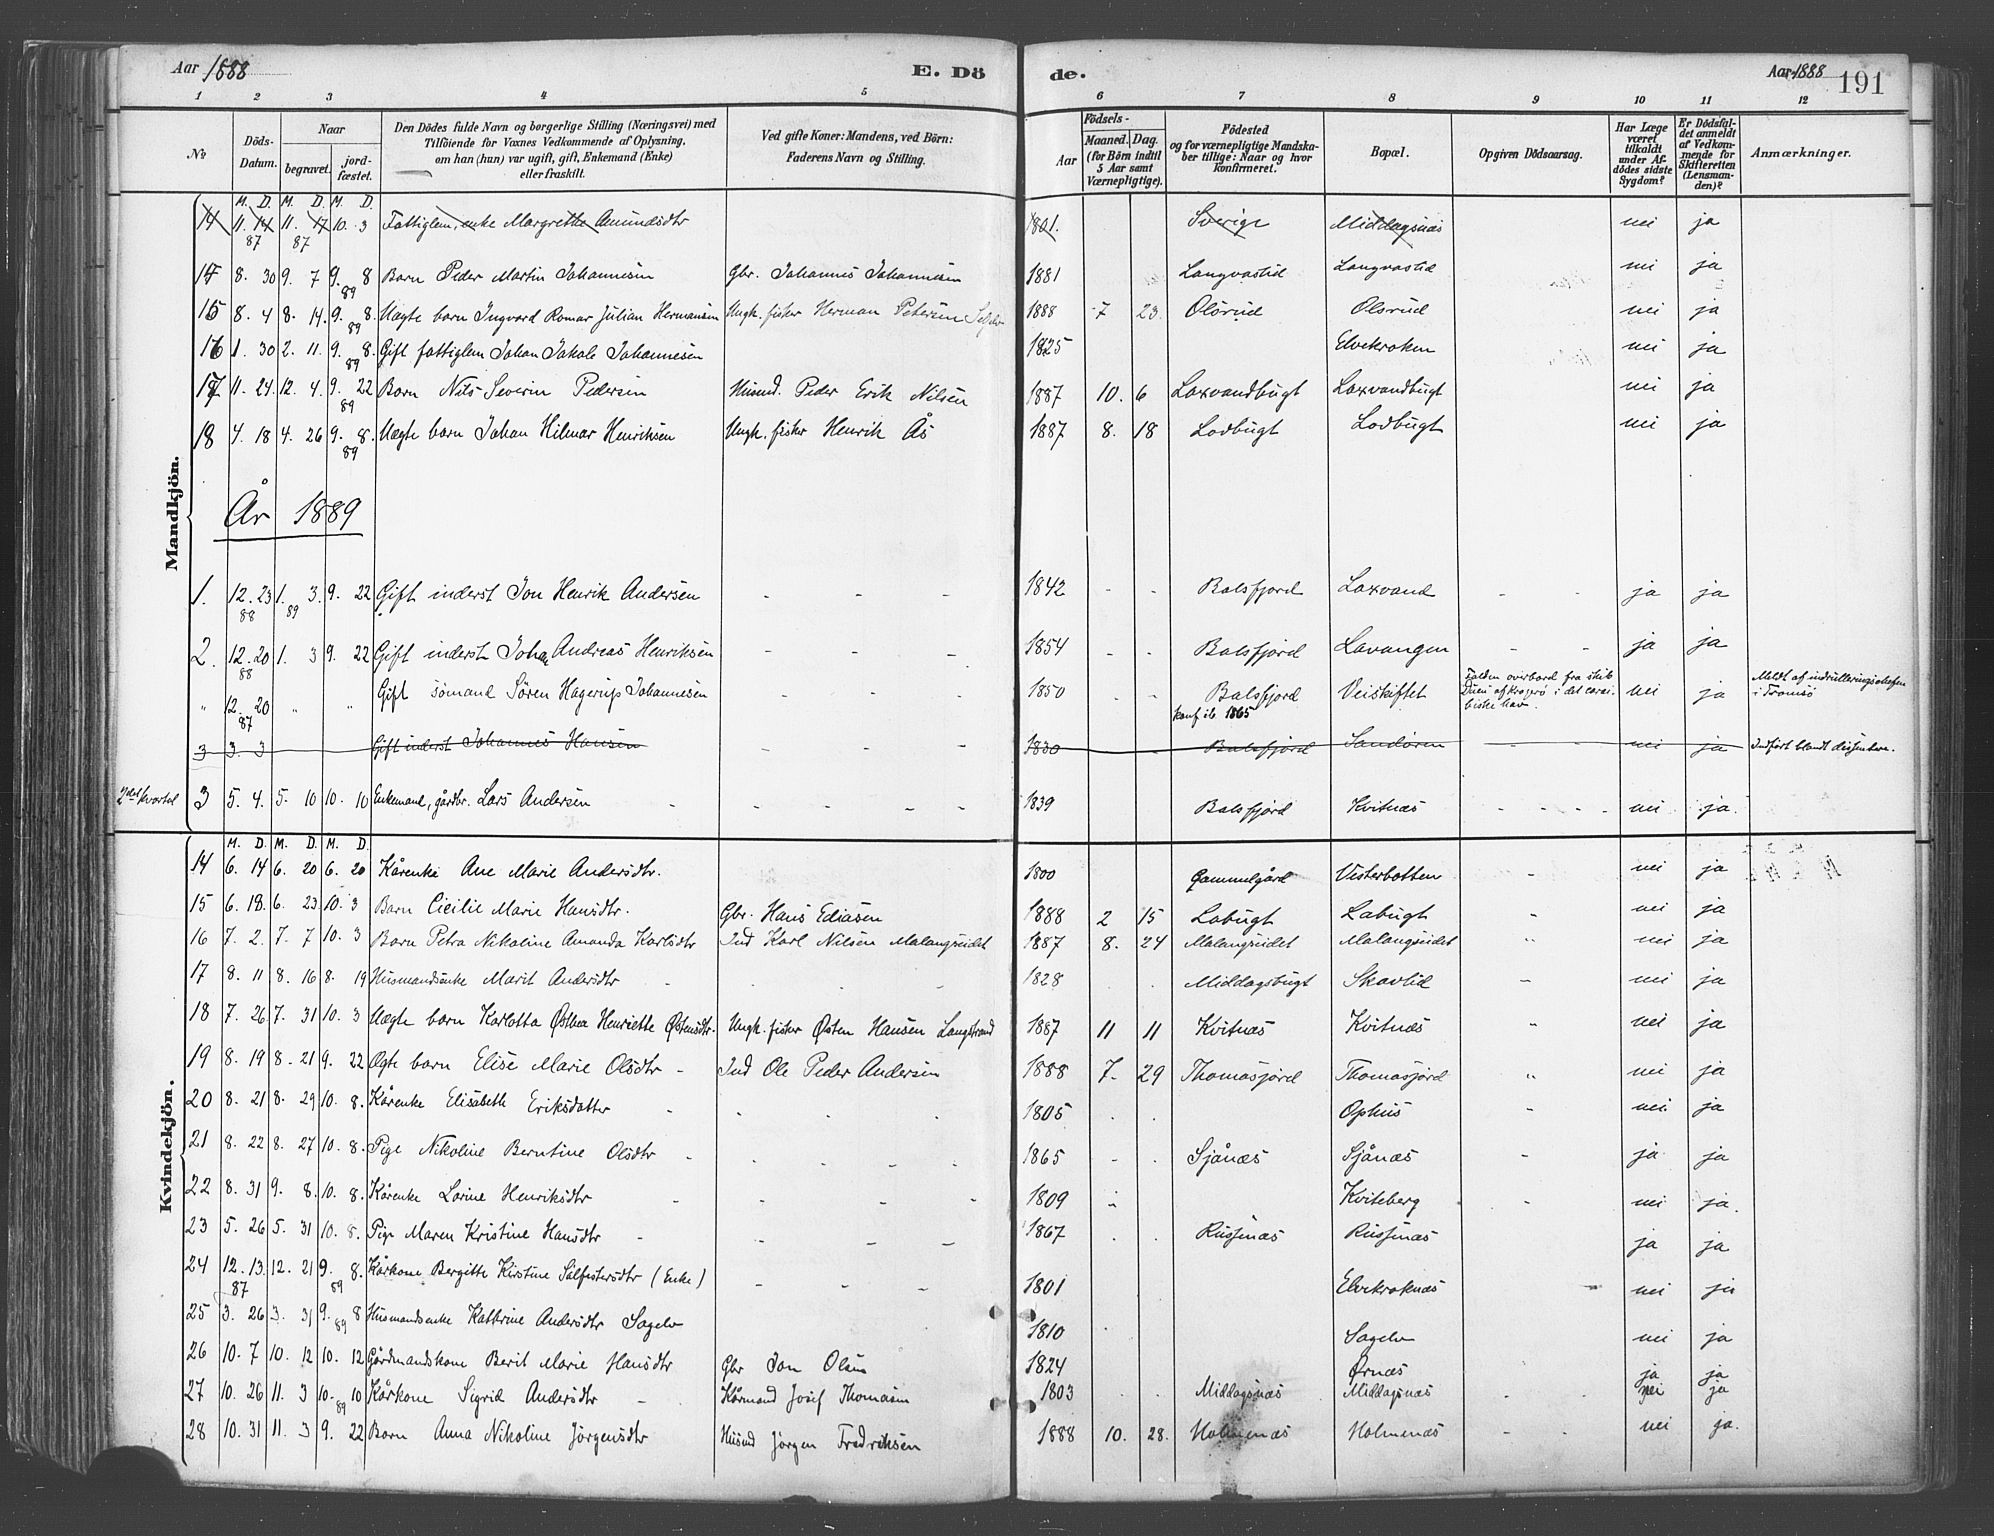 Aar 1888
E. Dö
de.
Aar 1888
191
1 2 3 4 5 6 7 8 9 10 11 12
No
Döds-Datum.
Naar
begravet.
jord-fæstet.
Den Dödes fulde Navn og borgerlige Stilling (Næringsvei) med
Tilföiende for Voxnes Vedkommende af Oplysning,
om han (hun) var ugift, gift, Enkemand (Enke)
eller fraskilt.
Ved gifte Koner: Mandens, ved Börn:
Faderens Navn og Stilling.
Födsels-
Aar
Maaned. Dag.
(for Börn indtil
5 Aar samt
Værnepligtige).
Födested
og for værnepligtige Mandska-
ber tillige: Naar og hvor
konfirmeret.
Bopæl.
Opgiven Dödsaarsag.
Har Læge
været
tilkaldt
under Af-
dödes sidste
Sygdom?
Er Dödsfal-
det anmeldt
af Vedkom-
mende for
Skifteretten
(Lensman-
den)?
Anmærkninger.
Mandkjön.
M. D. M. D. M. D.
14 11. 14 87 11. 17 87 10. 3 Fattiglem, enke Margrethe Amundsdtr 1801. Sverige Middagsnæs nei ja
14 8. 30 9. 7 9. 8 89 Barn Peder Martin Johannesen Gbr. Johannes Johannesen 1881 Langvastid Langvastid nei ja
15 8. 4 8. 14. 9. 8. 89 Uægte barn Ingvard Romar Julian Hermansen Ungk. fisker Herman Petersen 1888 7 23 Olsrud Olsrud nei ja
16 1. 30 2. 11. 9. 8. 89 Gift fattiglem Johan Jakob Johannesen 1825 Elvekroken nei ja
17 11. 24. 12. 4. 9. 22 89 Barn Nils Severin Pedersen Husmd. Peder Erik Nilsen 1887 10. 6 Laxvandbugt Laxvandbugt nei ja
18 4. 18 4. 26 9. 8. 89 Uægte barn Johan Hilmar Henriksen Ungk. fisker Henrik Ås 1887 8. 18 Lodbugt Lodbugt nei ja
År 1889
1. 12. 23 88 1. 3. 89 9. 22 Gift inderst Jon Henrik Andersen 1842 Balsfjord Laxvand ja ja
2. 12. 20 88 1. 3 9. 22 Gift inderst Johan Andreas Henriksen 1854 Balsfjord Lavangen ja ja
" 12. 20 87 " " Gift sömand Sören Hagerup Johannesen 1850 Balsfjord konf ib 1865 Veiskiftet Falden overbord fra skib
i det carai-
biske hav. nei ja Meldt af indrulleringschefen
i Tromsö
3 3. 3 Gift inderst Johannes Hansen 1830 Balsfjord Sandören nei ja Indført blandt dissentere.
2det kvartal 3 5. 4. 5. 10 10. 10 Enkemand, gårdbr. Lars Andersen 1839 Balsfjord Kvitnæs nei ja.
Kvindekjön.
M. D. M. D. M. D.
14 6. 14 6. 20 6. 20 Kårenke Ane Marie Andersdtr. 1800 Gammelgård Vesterbotten nei ja
15 6. 18. 6. 23 10. 3 Barn Cicilie Marie Hansdtr. Gbr. Hans Ediasen 1888 2 15 Labugt Labugt nei ja
16 7. 2. 7. 7 10. 3 Barn Petra Nikoline Amanda Karlsdtr Ind Karl Nilsen Malangseidet 1887 8. 24 Malangseidet Malangseidet " nei ja
17 8. 11 8. 16 8. 19 Husmandsenke Marit Andersdtr 1828 Middagsbugt Skavlid nei ja
18 7. 26 7. 31 10. 3 Uægte barn Karlotta Østhea Henriette Østensdtr. Ungk. fisker Østen Hansen Langstrand 1887 11 11 Kvitnæs Kvitnæs " nei ja
19 8. 19 8. 21 9. 22 Ægte barn Elise Marie Olsdtr Ind Ole Peder Andersen 1888 7. 29 Thomasjord Thomasjord " nei ja
20 8. 21 8. 29 10. 8. Kårenke Elisabeth Eriksdatter 1805 Ophus nei ja
21 8. 22 8. 27 10. 8. Pige Nikoline Berntine Olsdtr 1865 Sjånæs Sjånæs ja ja
22 8. 31 9. 8. 10. 8. Kårenke Lorine Henriksdtr 1809 Kviteberg nei ja.
23 5. 26 5. 31 10. 8. Pige Maren Kristine Hansdtr 1867 Russenæs Russenæs ja ja
24 12. 13. 87 12. 21 9. 8. 89 Kårkone Bergitte Kirstine Sølfestersdtr (Enke) 1801 Elvekroknæs nei ja
25 3. 26 3. 31 9. 8 89 Husmandsenke Kathrine Andersdtr Sagelv 1810 Sagelv nei ja
26 10. 7 10. 12 10. 12 Gårdmandskone Berit Marie Hansdtr Gbr Jon Olsen 1824 Ørnæs ja ja
27 10. 26 11. 3 10. 10 89 Kårkone Sigrid Andersdtr Kårmand Josef Thomasen 1803 Middagsnæs Middagsnæs nei ja
28 10. 31 11. 3 9. 22 Barn Anna Nikoline Jörgensdtr Husmd Jörgen Fredriksen 1888 10. 28. Holmenæs Holmenæs nei ja.